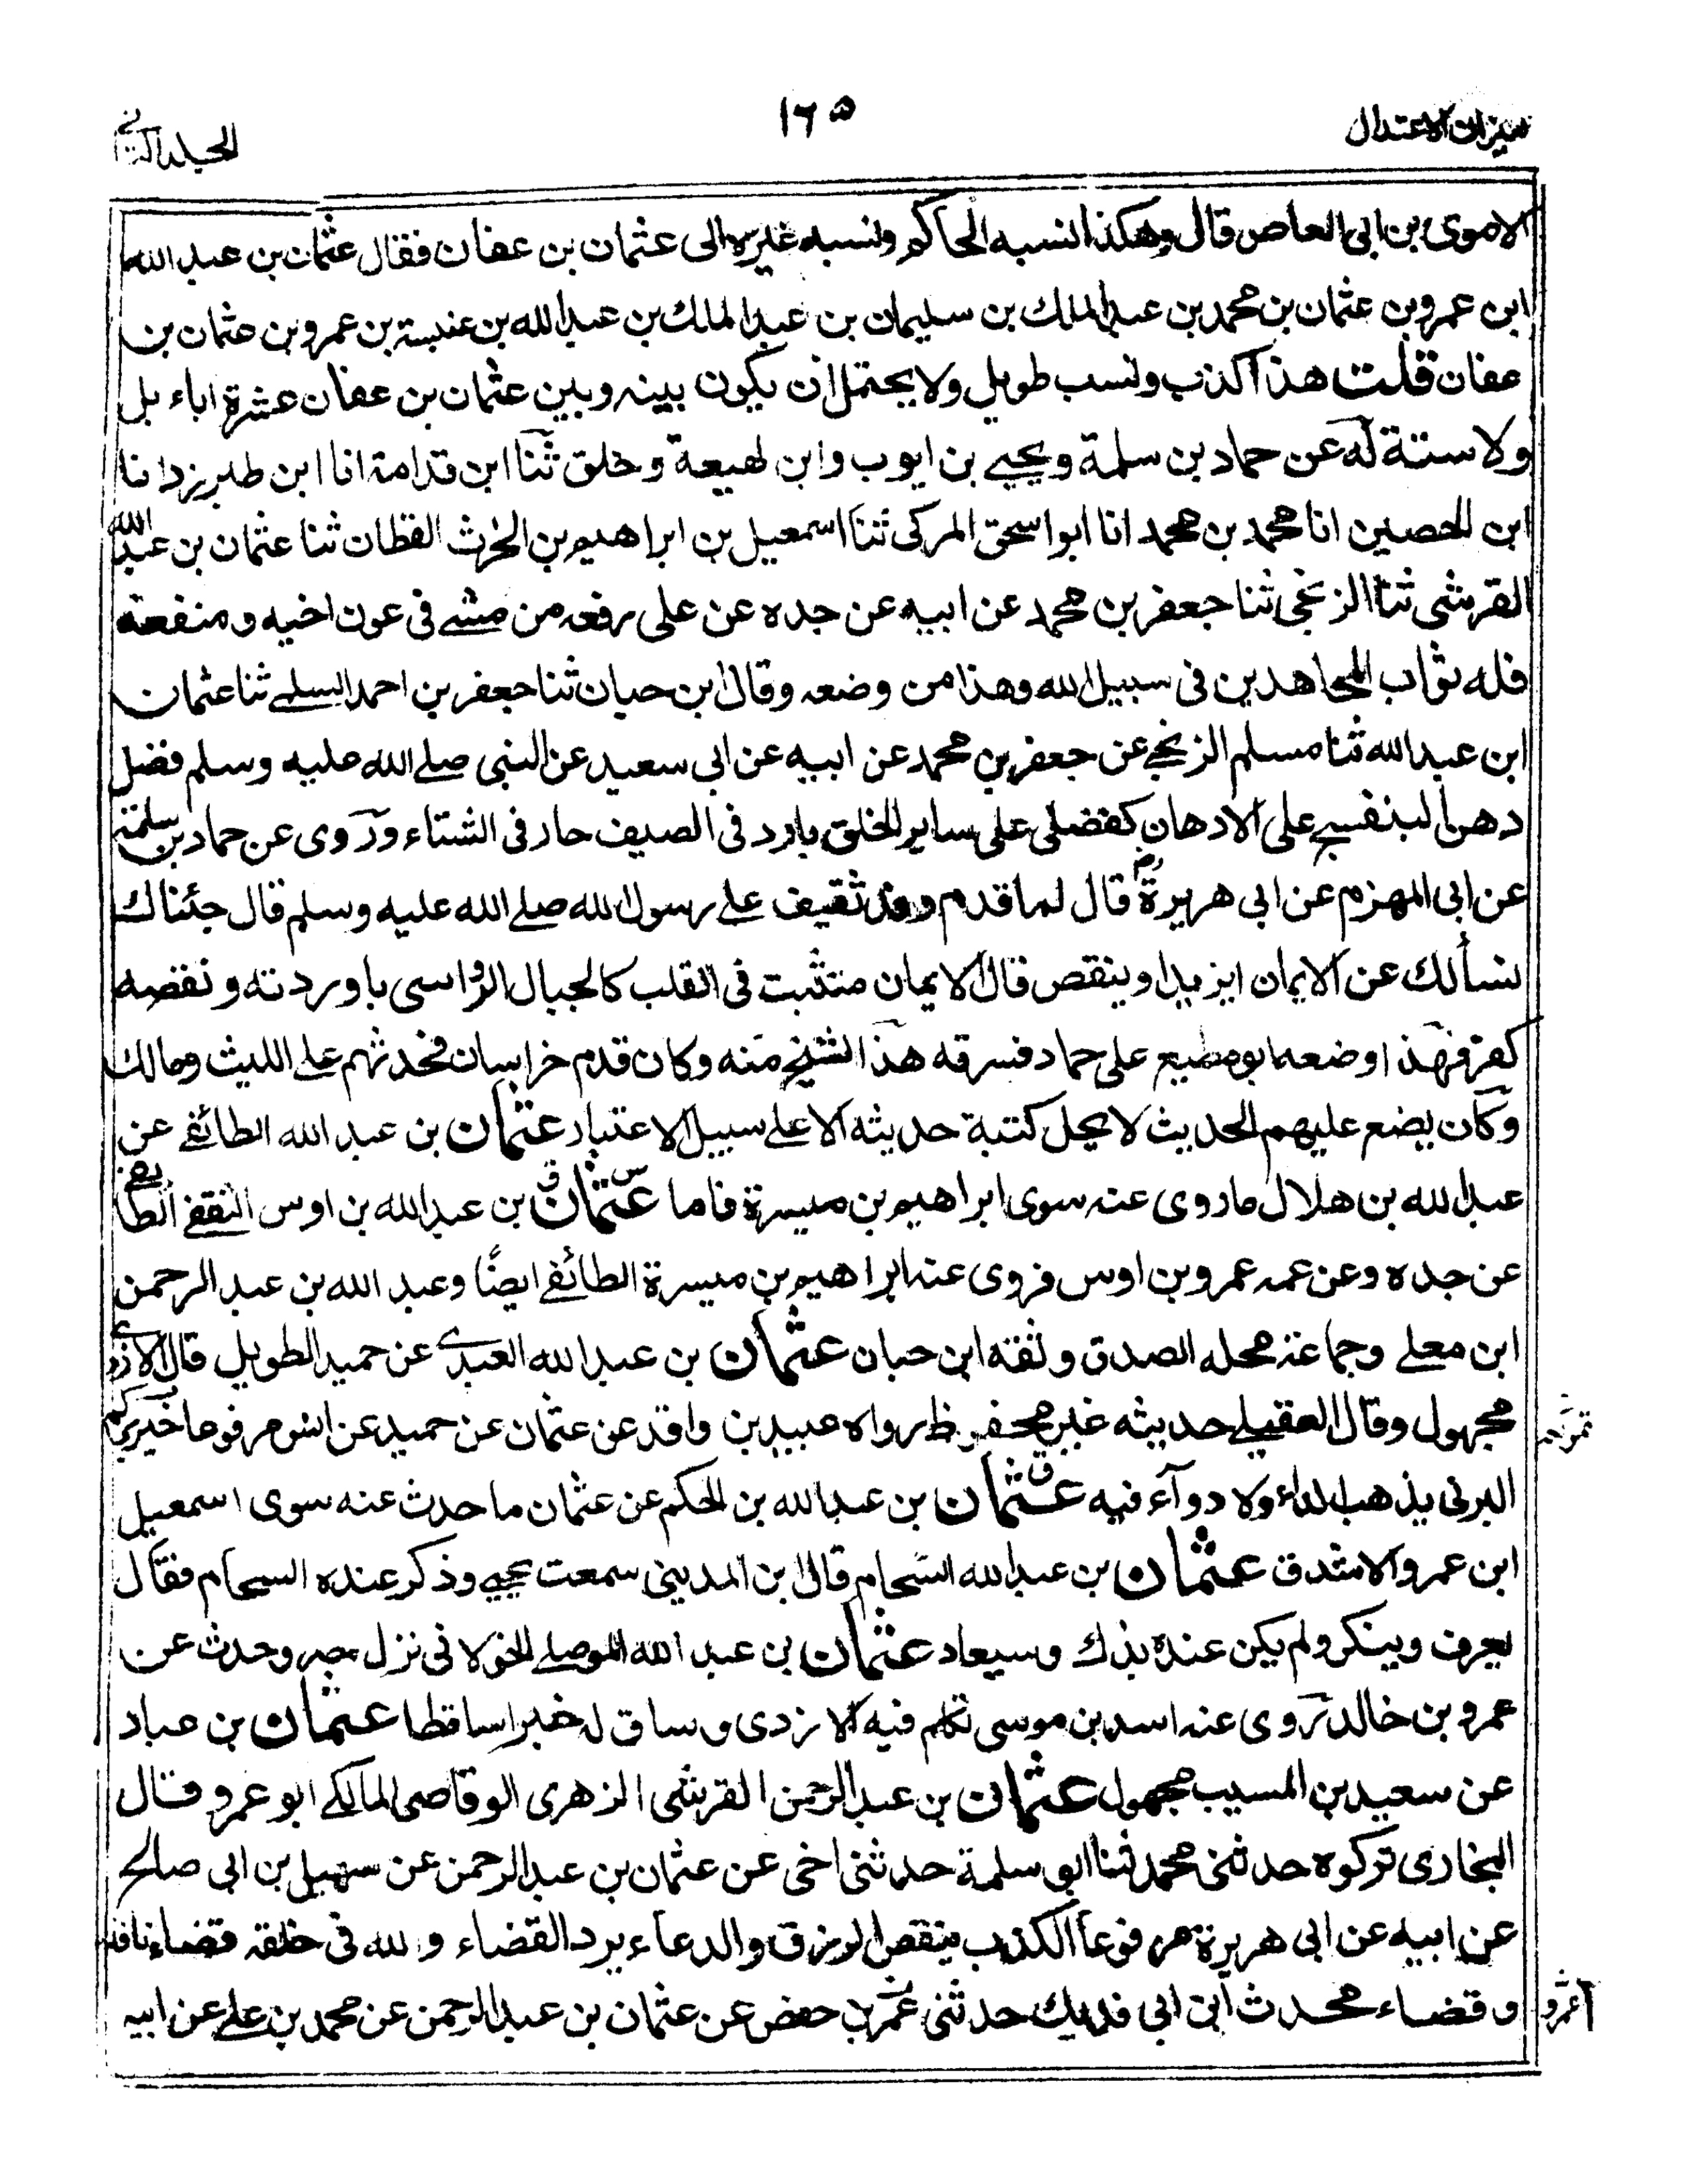 ميزان الاعتدال
١٦٥
المجلد الثاني
الاموى بن ابى العاص قال وهكذا نسبه الحاكم ونسبه غيره الى عثمان بن عفان فقال عثمان بن عبد الله
ابن عمرو بن عثمان بن محمد بن عبد الملك بن سليمان بن عبد الملك بن عبد الله بن عنبسة بن عمرو بن عثمان بن
عفان قلت هذا كذب ونسب طويل ولا يحتمل ان يكون بينه وبين عثمان بن عفان عشرة اباء بل
ولا ستة له عن حماد بن سلمة ويحيى بن ايوب وابن لهيعة وخلق ثنا ابن قدامة انا ابن طبرزد انا
ابن الحصين انا محمد بن محمد انا ابو اسحق المزكى ثنا اسمعيل بن ابراهيم بن الحرث القطان ثنا عثمان بن عبد الله
القرشى ثنا الزنجى ثنا جعفر بن محمد عن ابيه عن جده عن على رفعه من مشى فى عون اخيه ومنفعته
فله ثواب المجاهدين فى سبيل الله وهذا من وضعه وقال ابن حبان ثنا جعفر بن احمد السلمى ثنا عثمان
ابن عبد الله ثنا مسلم الزنجى عن جعفر بن محمد عن ابيه عن ابى سعيد عن النبى صلى الله عليه وسلم فضل
دهن البنفسج على الادهان كفضلى على ساير الخلق بارد فى الصيف حار فى الشتاء وروى عن حماد بن سلمة
عن ابى المهزم عن ابى هريرة رض قال لما قدم وفد ثقيف على رسول الله صلى الله عليه وسلم قال جئناك
نسألك عن الايمان ايزيد او ينقص قال الايمان متثبت فى القلب كالجبال الرواسى باوردته ونقصه
كفر فهذا وضعه ابو مطيع على حماد فسرقه هذا الشيخ منه وكان قدم خراسان فحدثهم على الليث ومالك
وكان يضع عليهم الحديث لا يحل كتبة حديثه الا على سبيل الاعتبار عثمان بن عبد الله الطائفى عن
عبد الله بن هلال ما روى عنه سوى ابراهيم بن ميسرة فاما عثمان س ق بن عبد الله بن اوس الثقفى الطائفى
عن جده وعن عمه عمرو بن اوس فروى عنه ابراهيم بن ميسرة الطائفى ايضًا وعبد الله بن عبد الرحمن
ابن معلى وجماعة محله الصدق وثقه ابن حبان عثمان بن عبد الله العبدى عن حميد الطويل قال الازدى
مجهول وقال العقيلى حديثه غير محفوظ رواه عبيد بن واقد عن عثمان عن حميد عن انس مرفوعا خير تمركم
تمراته
البرنى يذهب الداء ولا دوآء فيه عثمان ق بن عبد الله بن الحكم عن عثمان ما حدث عنه سوى اسمعيل
ابن عمرو الاشدق عثمان بن عبد الله الشحام قال ابن المدينى سمعت يحيى وذكر عنده الشحام فقال
يعرف وينكر ولم يكن عنده بذك وسيعاد عثمان بن عبد الله الموصلى الخولانى نزل مصر وحدث عن
عمرو بن خالد روى عنه اسد بن موسى تكلم فيه الازدى وساق له خبرا ساقطا عثمان بن عباد
عن سعيد بن المسيب مجهول عثمان بن عبد الرحمن القرشى الزهرى الوقاصى المالكى ابو عمرو قال
البخارى تركوه حدثنى محمد ثنا ابو سلمة حدثنى اخى عن عثمان بن عبد الرحمن عن سهيل بن ابى صالح
عن ابيه عن ابى هريرة مرفوعا الكذب ينقص الرزق والدعاء يرد القضاء ولله فى خلقه قضاء نافذ
وقضاء محدث ابن ابى فديك حدثنى عمر بن حفص عن عثمان بن عبد الرحمن عن محمد بن على عن ابيه
عمرو